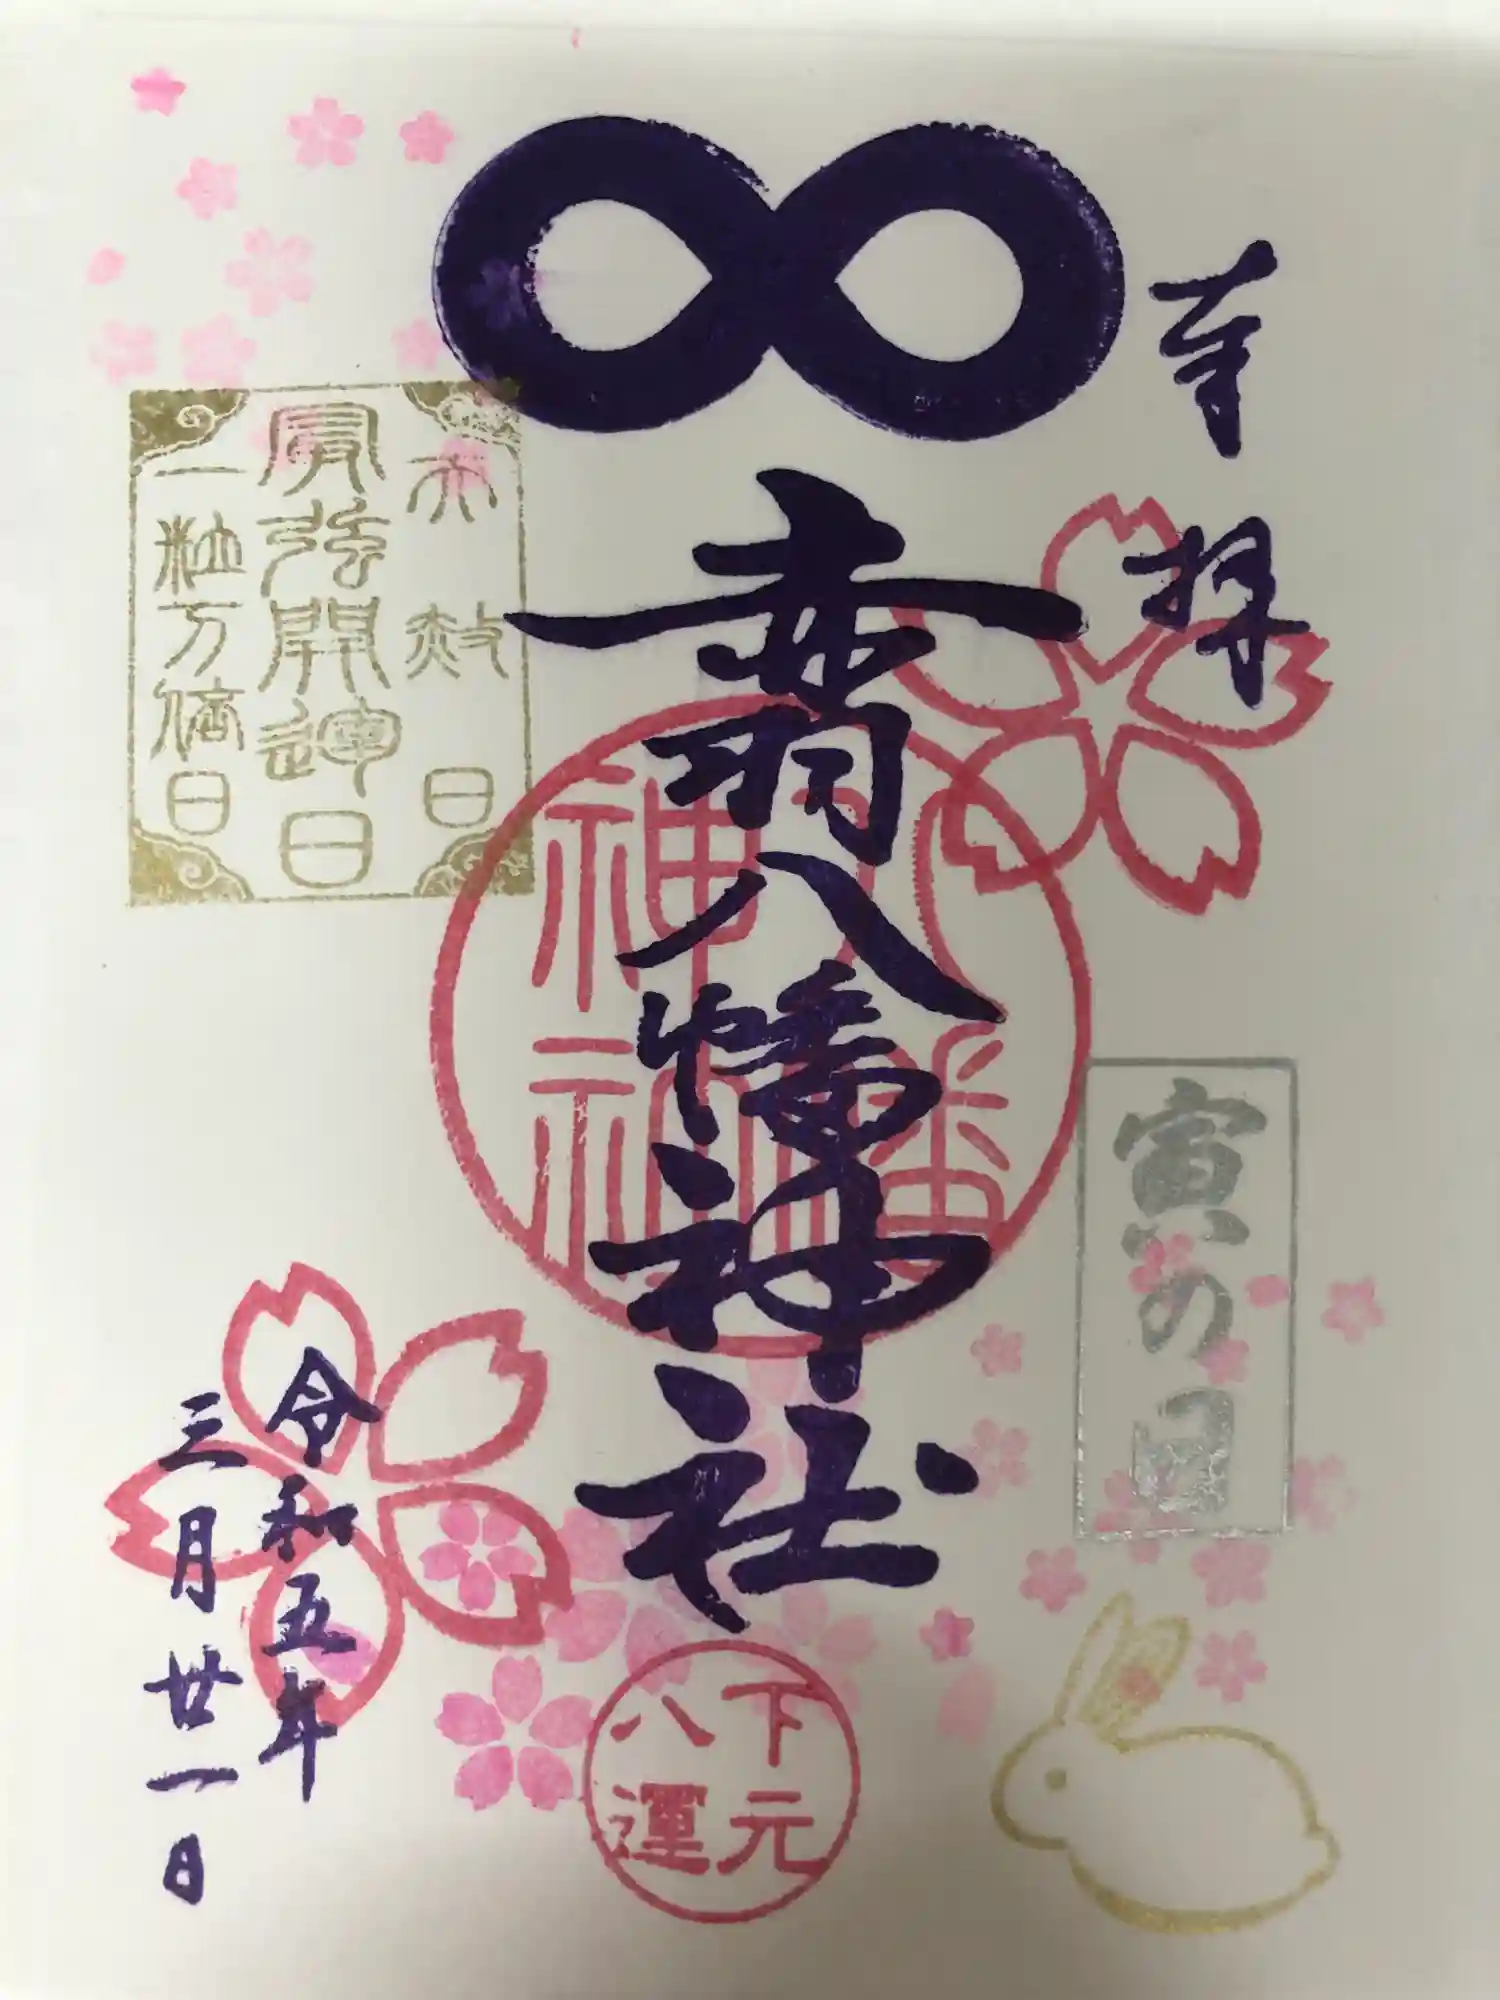 奉拝
∞
赤羽八幡神社
八幡
神社
天赦日
最強開運日
一粒万倍日
寅の日
下元
八運
令和五年
三月廿一日